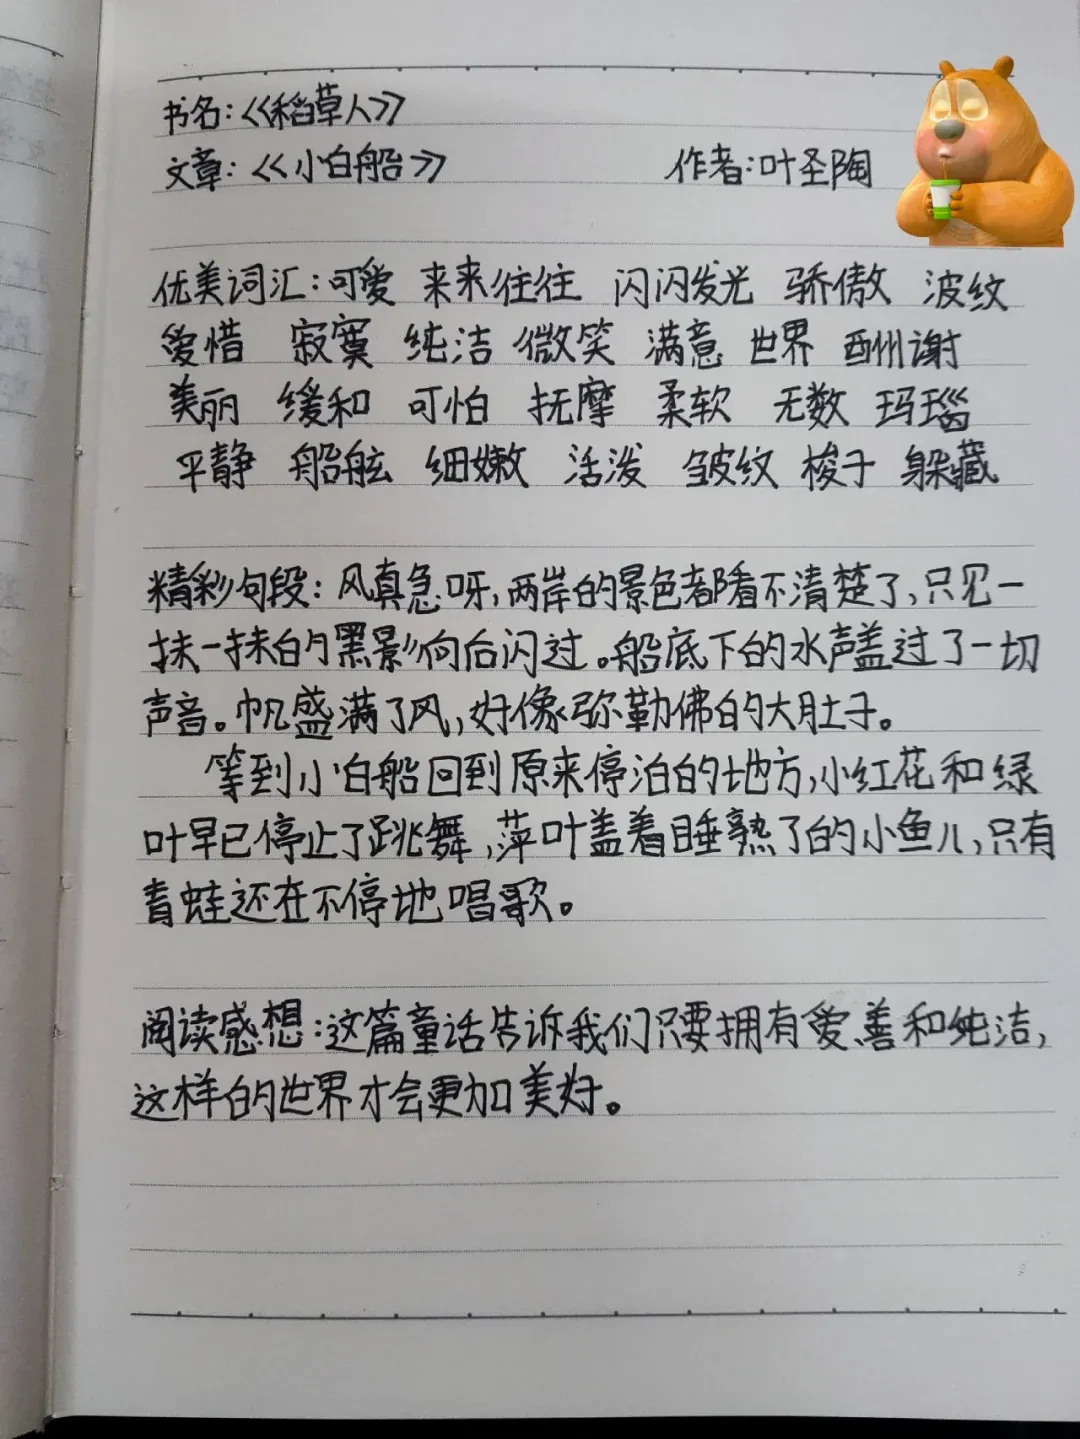 书名:《稻草人》
文章:《小白船》 作者:叶圣陶
优美词汇:可爱 来来往往 闪闪发光 骄傲 波纹
爱惜 寂寞 纯洁 微笑 满意 世界 酬谢
美丽 缓和 可怕 抚摩 柔软 无数 玛瑙
平静 船舷 细嫩 活泼 皱纹 梭子 躲藏
精彩句段:风真急呀,两岸的景色都看不清楚了,只见一
抹一抹的黑影向后闪过。船底下的水声盖过了一切
声音。帆盛满了风,好像弥勒佛的大肚子。
等到小白船回到原来停泊的地方,小红花和绿
叶早已停止了跳舞,萍叶盖着睡熟了的小鱼儿,只有
青蛙还在不停地唱歌。
阅读感想:这篇童话告诉我们只要拥有爱、善和纯洁,
这样的世界才会更加美好。